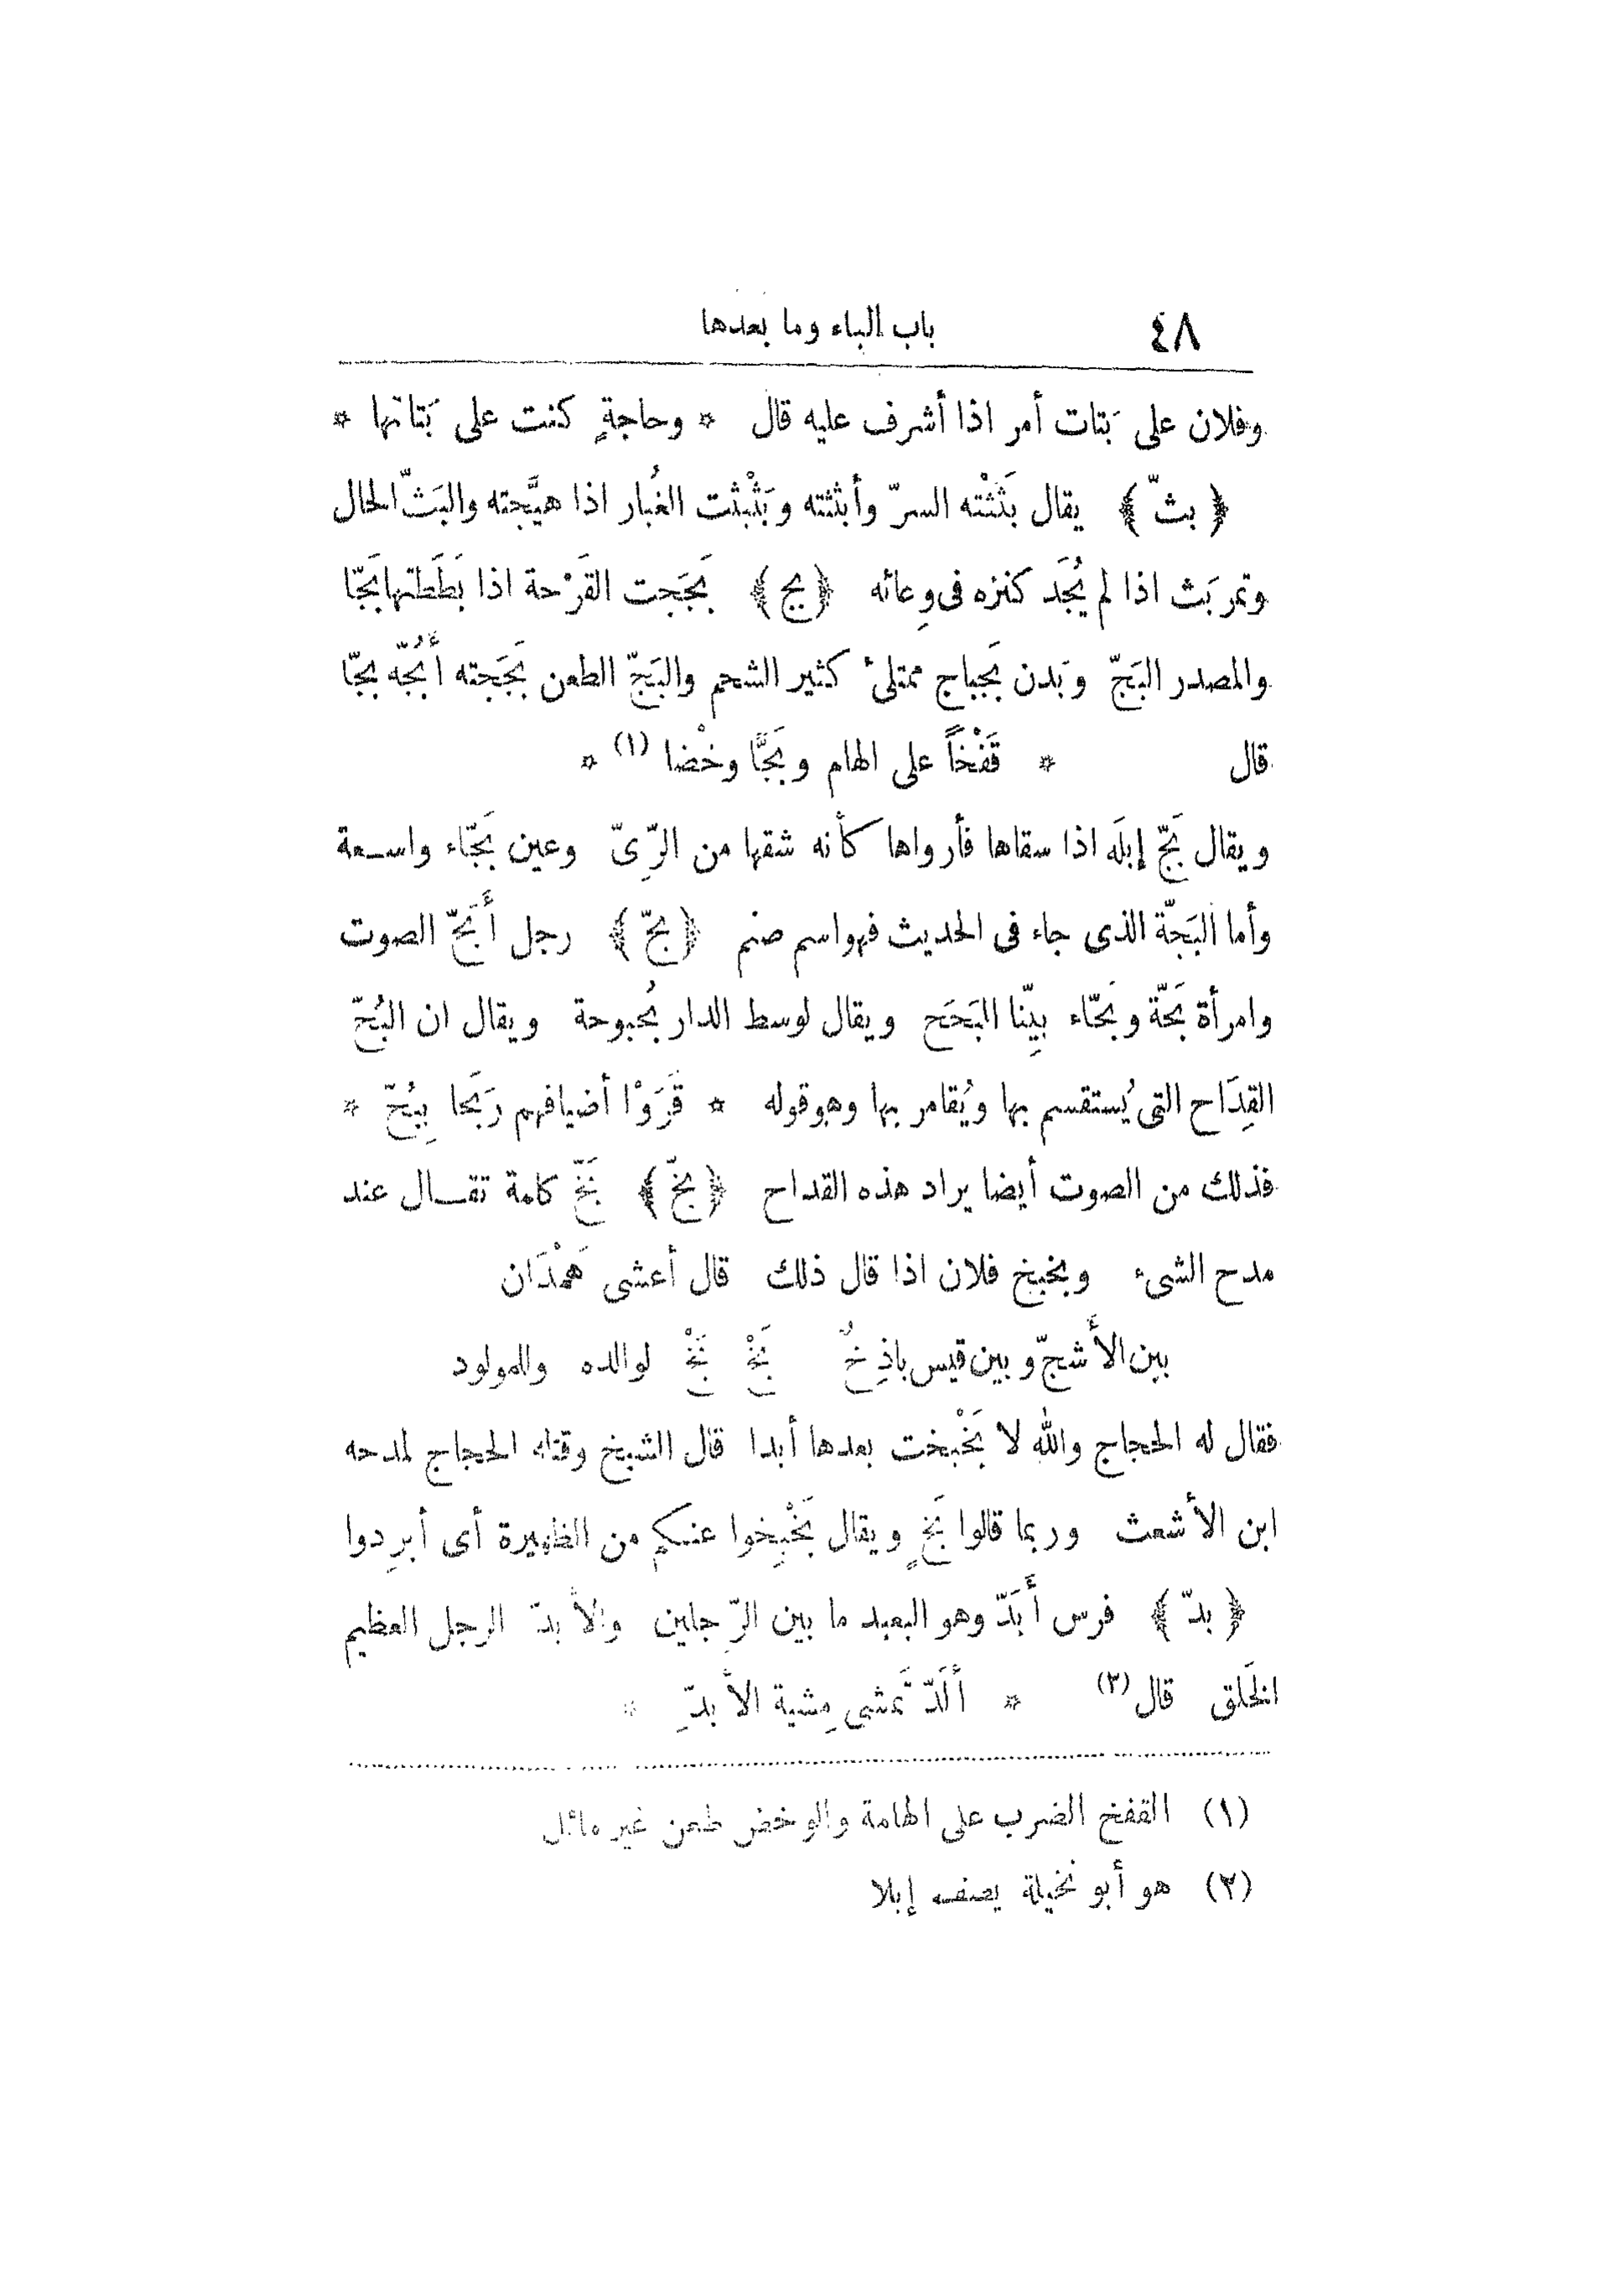 ٤٨ باب الباء وما بعدها
وفلان على بَتات أمر اذا أشرف عليه قال * وحاجةٍ كنت على بَتاتها *
﴿ بثّ ﴾ يقال بَثَثْته السرّ وأبثثته وبَثْبثت الغُبار اذا هيَّجته والبَثّ الحال
وتمر بَث اذا لم يُجَد كنزه فى وِعائه ﴿ بج ﴾ بَجَجت القَرْحة اذا بَطَطتها بَجّا
والمصدر البَجّ وبَدن بَجباج ممتلئ كثير الشحم والبَجّ الطعن بَجَجته أَبُجّه بجّا
قال * قَفْخاً على الهام وبَجًّا وخْضا (١) *
ويقال بَجّ إبلَه اذا سقاها فأرواها كأنه شقها من الرِّىّ وعين بَجّاء واسعة
وأما البَجّة الذى جاء فى الحديث فهو اسم صنم ﴿ بحّ ﴾ رجل أَبَحّ الصوت
وامرأة بَحّة وبَحّاء بيِّنا البَحَح ويقال لوسط الدار بُحبوحة ويقال ان البُحّ
القِدَاح التى يُستقسم بها ويُقامر بها وهو قوله * قَرَوْا أضيافهم رَبَحا بِبُحّ *
فذلك من الصوت أيضا يراد هذه القداح ﴿ بخّ ﴾ بَخّ كلمة تقال عند
مدح الشىء وبخبخ فلان اذا قال ذلك قال أعشى هَمْدَان
بين الأَشجّ وبين قيس باذِخٌ بَخْ بَخْ لوالده وللمولود
فقال له الحجاج والله لا بَخْبخت بعدها أبدا قال الشيخ وقتله الحجاج لمدحه
ابن الأشعث وربما قالوا بَخٍ ويقال بَخْبِخوا عنكم من الظهيرة أى أبرِدوا
﴿ بدّ ﴾ فرس أَبَدّ وهو البعيد ما بين الرِّجلين والأبدّ الرجل العظيم
الخَلق قال (٢) * أَلَدّ تَمشى مِشية الأَبدِّ *
(١) القفخ الضرب على الهامة والوخض طعن غير مائل
(٢) هو أبو نخيلة يصف إبلا